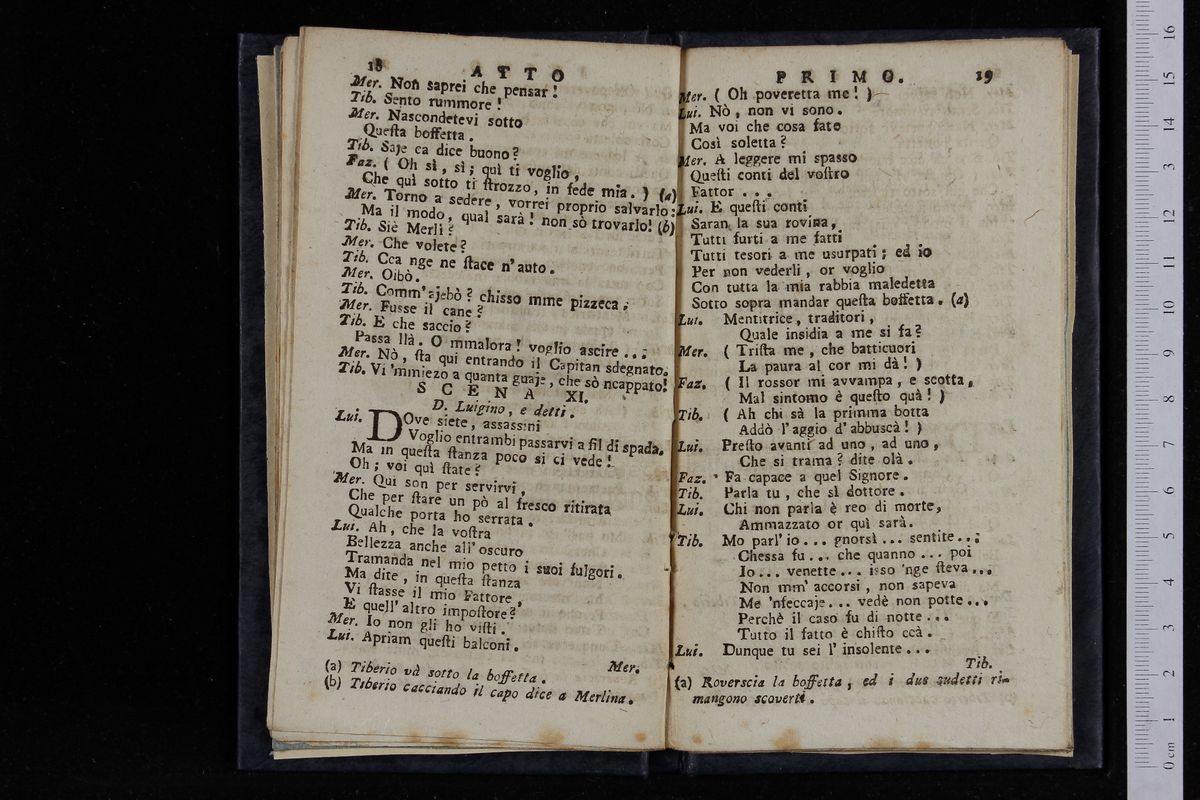 18
ATTO
Mer. Non saprei che pensar!
Tib. Sento rummore!
Mer. Nascondetevi sotto
Queſta boffetta.
Tib. Saje ca dice buono?
Faz. ( Oh sì, sì; quì ti voglio,
Che quì sotto ti ſtrozzo, in fede mia. ) (a)
Mer. Torno a sedere, vorrei proprio salvarlo:
Ma il modo, qual sarà! non sò trovarlo! (b)
Tib. Siè Merlì?
Mer. Che volete?
Tib. Cca nge ne ſtace n'auto.
Mer. Oibò.
Tib. Comm'ajebò? chisso mme pizzeca;
Mer. Fusse il cane?
Tib. E che saccio?
Passa llà. O mmalora! voglio ascire ...;
Mer. Nò, ſta qui entrando il Capitan sdegnato.
Tib. Vi 'mmiezo a quanta guaje, che sò ncappato!
SCENA XI.
D. Luigino, e detti.
Lui. DOve siete, assassini
Voglio entrambi passarvi a fil di spada.
Ma in queſta ſtanza poco si ci vede!
Oh; voi quì ſtate?
Mer. Qui son per servirvi,
Che per ſtare un pò al fresco ritirata
Qualche porta ho serrata.
Lui. Ah, che la voſtra
Bellezza anche all'oscuro
Tramanda nel mio petto i suoi fulgori.
Ma dite, in queſta ſtanza
Vi ſtasse il mio Fattore,
E quell'altro impoſtore?
Mer. Io non gli ho viſti.
Lui. Apriam queſti balconi.
Mer.
(a) Tiberio và sotto la boffetta.
(b) Tiberio cacciando il capo dice a Merlina.
PRIMO.
19
Mer. ( Oh poveretta me! )
Lui. Nò, non vi sono.
Ma voi che cosa fate
Così soletta?
Mer. A leggere mi spasso
Queſti conti del voſtro
Fattor ...
Lui. E queſti conti
Saran la sua rovina,
Tutti furti a me fatti
Tutti tesori a me usurpati; ed io
Per non vederli, or voglio
Con tutta la mia rabbia maledetta
Sotto sopra mandar queſta boffetta. (a)
Lui. Mentitrice, traditori,
Quale insidia a me si fa?
Mer. ( Triſta me, che batticuori
La paura al cor mi dà! )
Faz. ( Il rossor mi avvampa, e scotta,
Mal sintomo è queſto quà! )
Tib. ( Ah chi sà la primma botta
Addò l'aggio d'abbuscà! )
Lui. Preſto avanti ad uno, ad uno,
Che si trama? dite olà.
Faz. Fa capace a quel Signore.
Tib. Parla tu, che sì dottore.
Lui. Chi non parla è reo di morte,
Ammazzato or quì sarà.
Tib. Mo parl'io... gnorsì... sentite...;
Chessa fu... che quanno... poi
Io... venette... isso 'nge ſteva...
Non mm'accorsi, non sapeva
Me 'nfeccaje... vedè non potte...
Perchè il caso fu di notte...
Tutto il fatto è chiſto ccà.
Lui. Dunque tu sei l'insolente...
Tib.
(a) Roverscia la boffetta, ed i due sudetti ri-
mangono scoverti.
0 cm 1 2 3 4 5 6 7 8 9 10 11 12 13 14 15 16